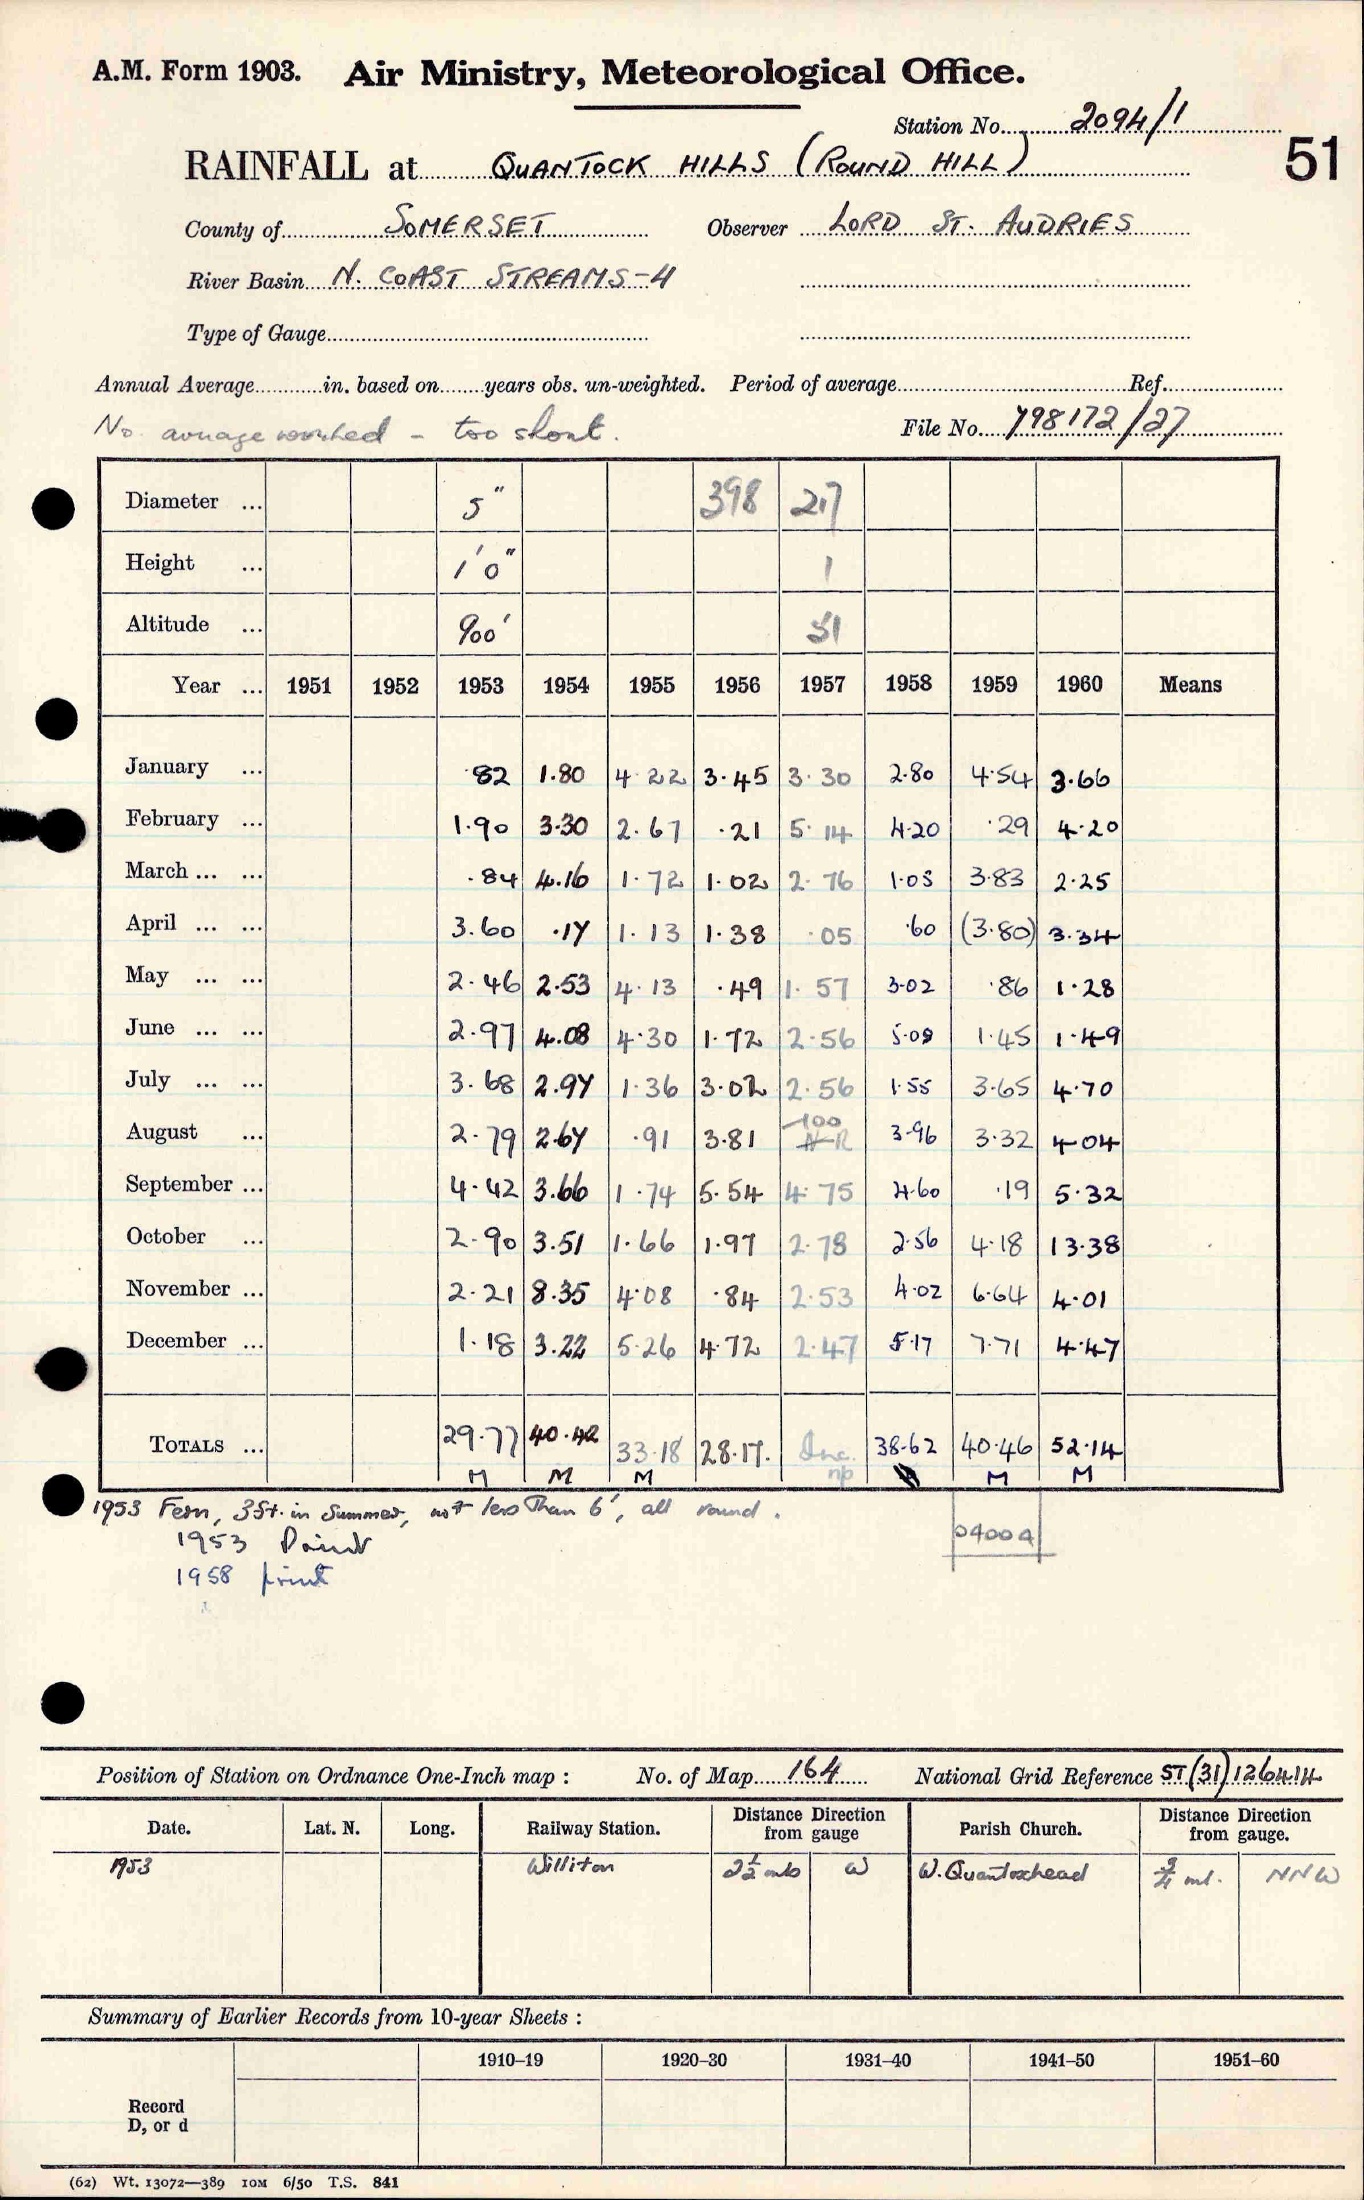 A.M. Form 1903. Air Ministry, Meteorological Office.
Station No. 2094/1
51
RAINFALL at QUANTOCK HILLS (ROUND HILL)
County of SOMERSET Observer LORD ST. AUDRIES
River Basin N. COAST STREAMS-4
Type of Gauge
Annual Average in. based on years obs. un-weighted. Period of average Ref.
No average worked - too short. File No. 798172/27
Diameter ... 5" 398 217
Height ... 1'0" 1
Altitude ... 900' 51
Year ... 1951 1952 1953 1954 1955 1956 1957 1958 1959 1960 Means
January ... .82 1.80 4.22 3.45 3.30 2.80 4.54 3.66
February ... 1.90 3.30 2.67 .21 5.14 4.20 .29 4.20
March ... ... .84 4.16 1.72 1.02 2.76 1.08 3.83 2.25
April ... ... 3.60 .17 1.13 1.38 .05 .60 (3.80) 3.34
May ... ... 2.46 2.53 4.13 .49 1.57 3.02 .86 1.28
June ... ... 2.97 4.08 4.30 1.72 2.56 5.08 1.45 1.49
July ... ... 3.68 2.97 1.36 3.02 2.56 1.55 3.65 4.70
August ... 2.79 2.67 .91 3.81 -100 3.96 3.32 4.04
September ... 4.42 3.66 1.74 5.54 4.75 4.60 .19 5.32
October ... 2.90 3.51 1.66 1.97 2.78 2.56 4.18 13.38
November ... 2.21 8.35 4.08 .84 2.53 4.02 6.64 4.01
December ... 1.18 3.22 5.26 4.72 2.47 5.17 7.71 4.47
TOTALS ... 29.77 40.42 33.18 28.17. Inc. 38.62 40.46 52.14
M M M np M M
1953 Fern, 3ft. in summer, not less than 6', all round.
04004
1953
1958 print
Position of Station on Ordnance One-Inch map : No. of Map 164 National Grid Reference ST(31)126414
Date. Lat. N. Long. Railway Station. Distance Direction from gauge Parish Church. Distance Direction from gauge.
1953 Williton 2½ mls W W. Quantoxhead ¾ ml. NNW
Summary of Earlier Records from 10-year Sheets :
1910–19 1920–30 1931–40 1941–50 1951–60
Record
D, or d
(62) Wt. 13072—389 10M 6/50 T.S. 841